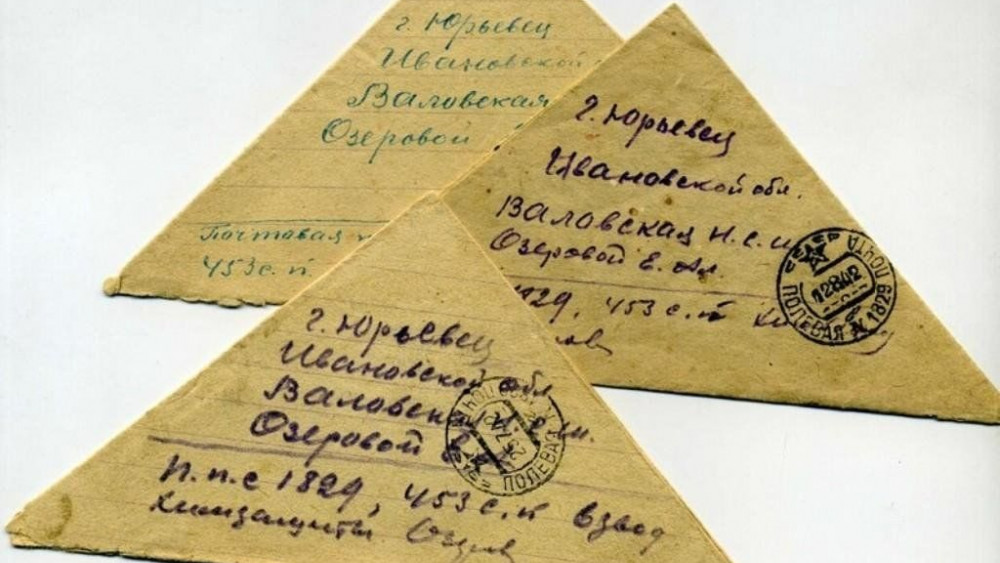 г. Юрьевец
Ивановской
Валовская
Озеровой
Почтовая
453 с.п.
г. Юрьевец
Ивановской обл.
Валовская н.с.ш.
Озеровой Е. Ал.
1829, 453 с.п
СССР
ПОЛЕВАЯ ПОЧТА
N 1829
12842
г. Юрьевец
Ивановской обл
Валовская н.с.ш.
Озеровой Е.
П.п.с 1829, 453 с.п взвод
Химзащиты
ПОЛЕВАЯ